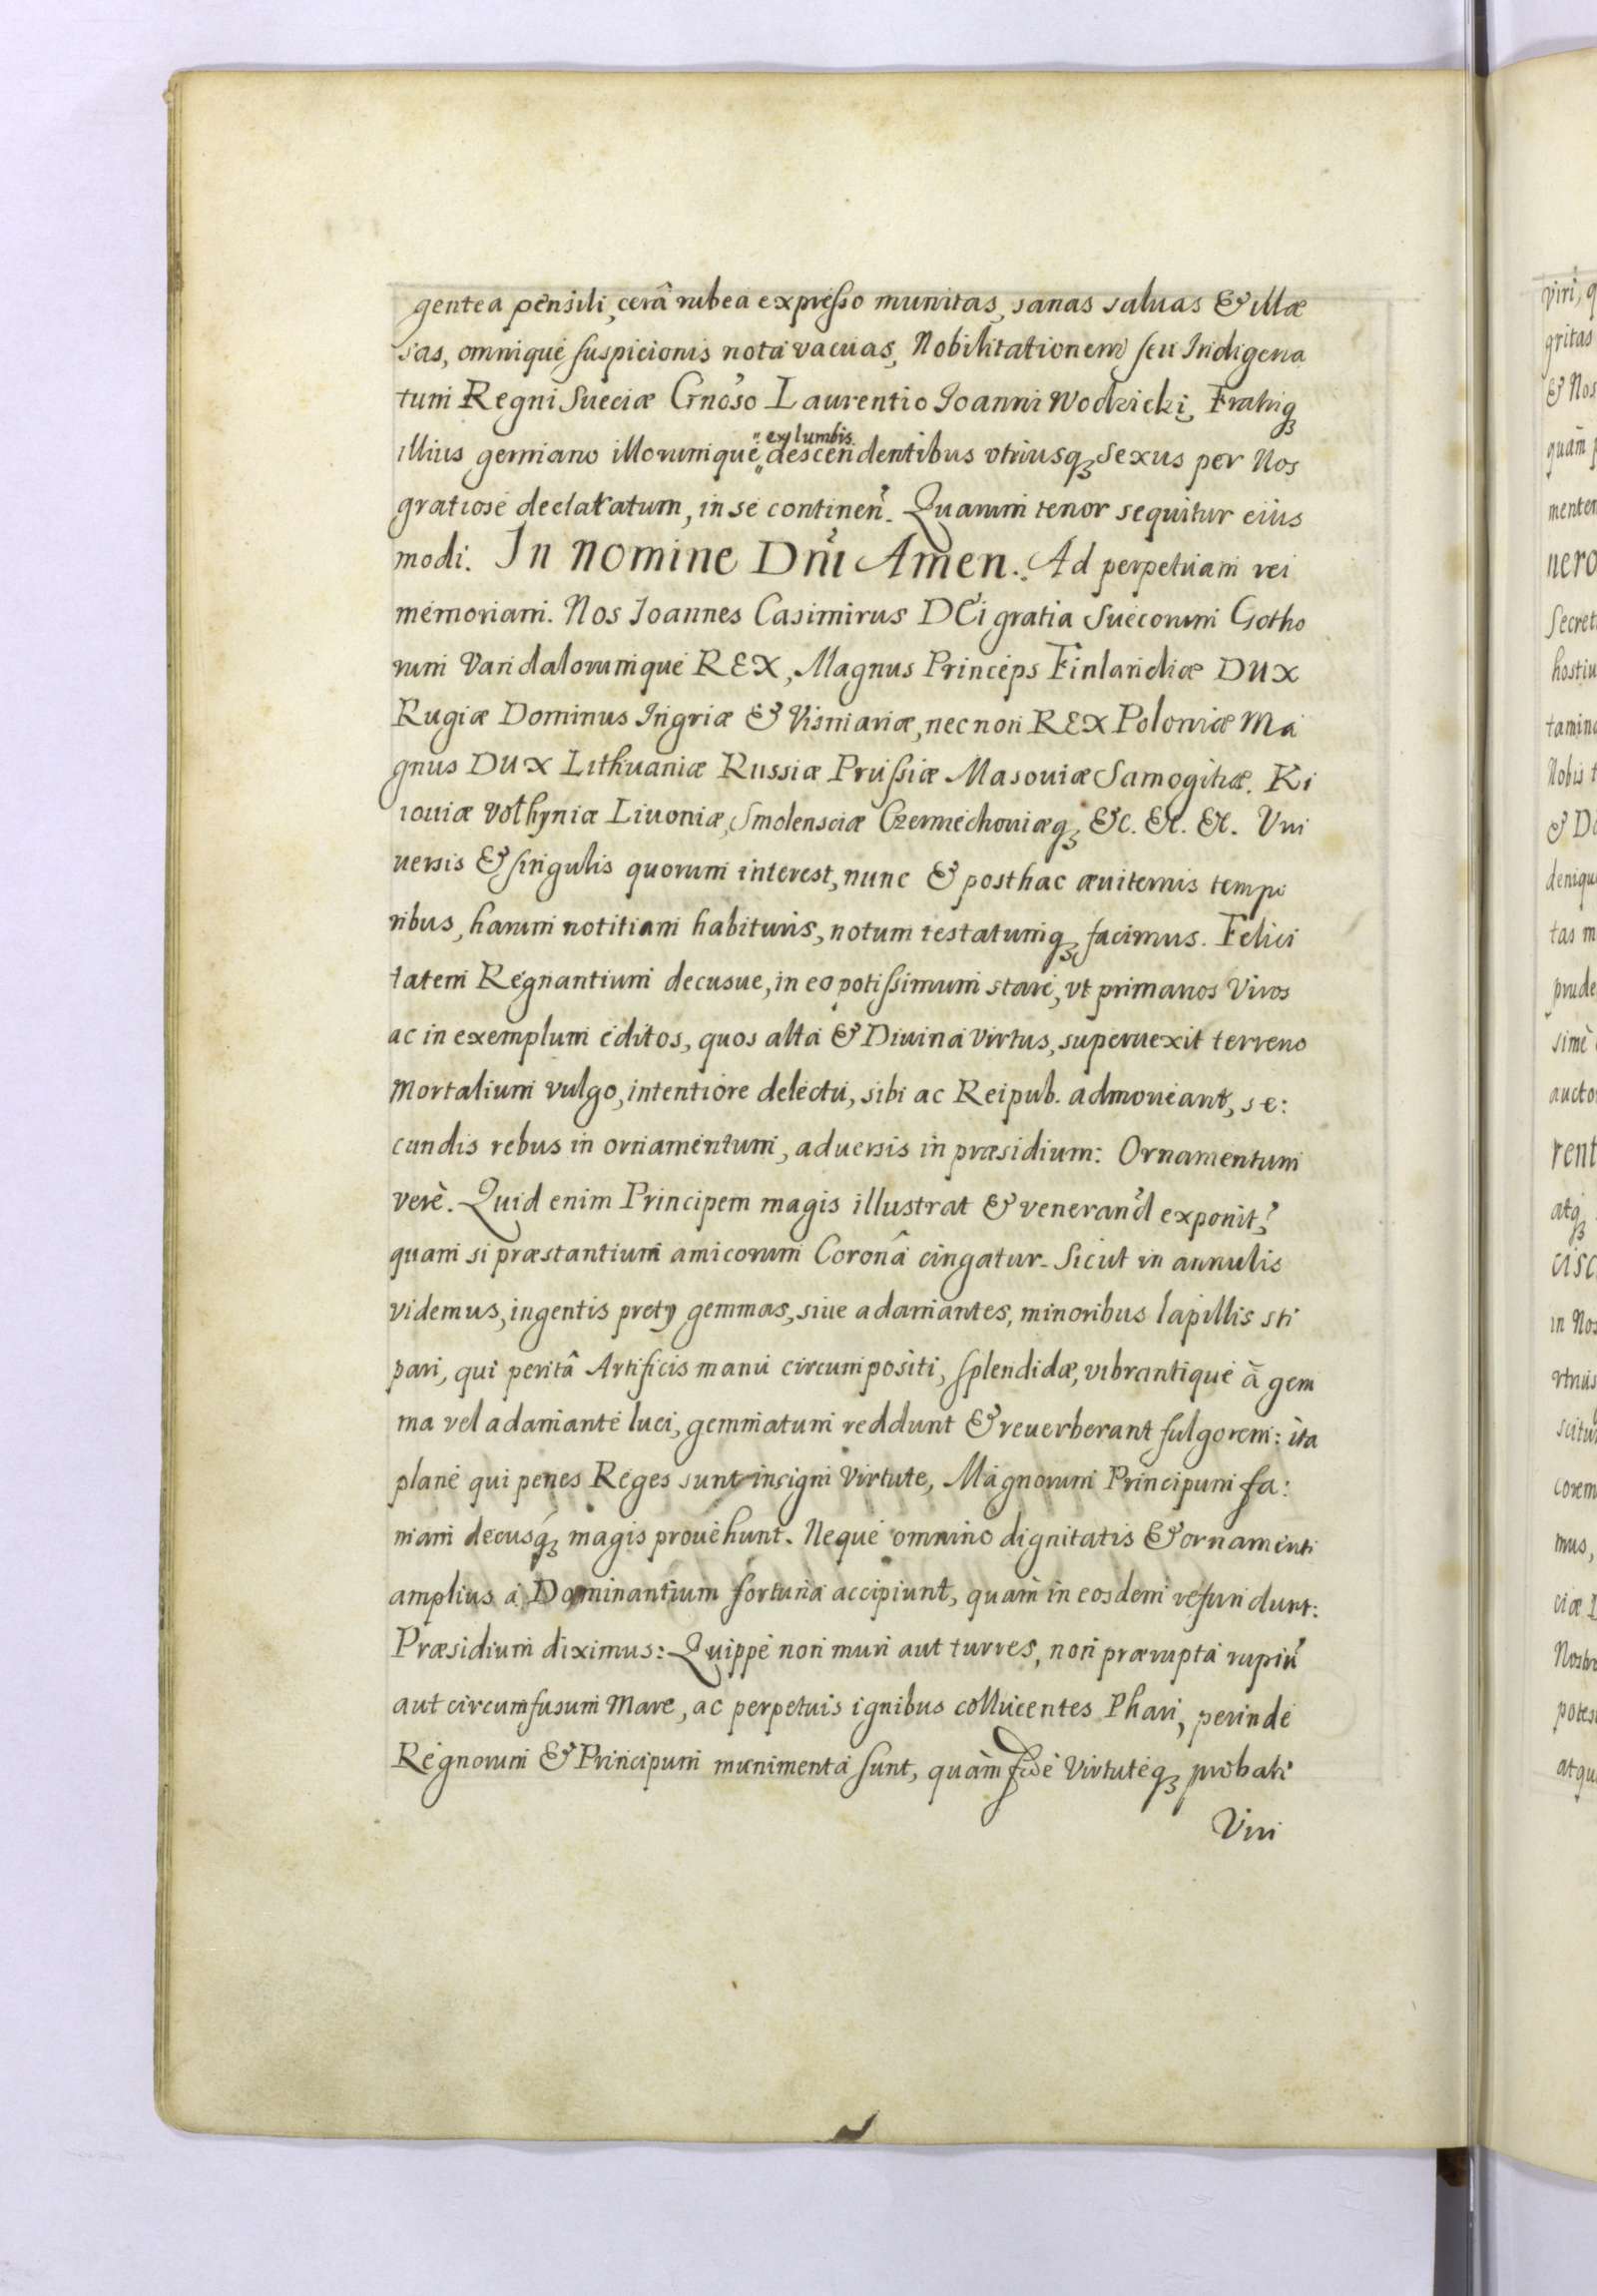 gentea pensili, cerâ rubea expresso munitas, sanas saluas & illæ
sas, omnique suspicionis nota vacuas, Nobilitationem seu Indigena
tum Regni Sueciæ Gnoso Laurentio Ioanni Wodzicki, Fratriq
illius germano illorumque ex lumbis descendentibus vtriusq, sexus per Nos
gratiose declaratum, in se continen. Quarum tenor sequitur eius
modi. In nomine Dni Amen. Ad perpetuam rei
memoriam. Nos Ioannes Casimirus DEi gratia Suecorum Gotho
rum Vandalorumque REX, Magnus Princeps Finlandiæ DUX
Rugiæ Dominus Ingriæ & Vismariæ, nec non REX Poloniæ Ma
gnus DUX Lithuaniæ Russiæ Prussiæ Masouiæ Samogitiæ. Ki
iouiæ Volhyniæ Liuoniæ, Smolensciæ Czerniechouiæq, &c. &c. &c. Vni
uersis & singulis quorum interest, nunc & posthac æuiternis tempo
ribus, harum notitiam habituris, notum testatumq, facimus. Felici
tatem Regnantium decusue, in eo potissimum stare, vt primarios Viros
ac in exemplum editos, quos alta & Diuina virtus, superuexit terreno
Mortalium vulgo, intentiore delectu, sibi ac Reipub. admoueant, se:
cundis rebus in ornamentum, aduersis in præsidium: Ornamentum
verè. Quid enim Principem magis illustrat & venerand exponit?
quam si præstantium amicorum Coronâ cingatur. Sicut in annulis
videmus, ingentis pretij gemmas, siue adamantes, minoribus lapillis sti
pari, qui peritâ Artificis manu circumpositi, splendidæ, vibrantique à gem
ma vel adamante luci, gemmatum reddunt & reuerberant fulgorem: ita
plane qui penes Reges sunt insigni virtute, Magnorum Principum fa:
mam decusq, magis prouehunt. Neque omnino dignitatis & ornamenti
amplius a Dominantium fortuna accipiunt, quam in eosdem refundunt:
Præsidium diximus: Quippe non muri aut turres, non prærupta rupiu
aut circumfusum Mare, ac perpetuis ignibus collucentes Phari, perinde
Regnorum & Principum munimenta sunt, quàm fide Virtuteq, probati
Viri
viri, q
gritas
& Nos
quàm p
menten
nero
Secret
hostiu
tamina
Nobis t
& Do
deniqu
tas m
prude
simè
aucto
rent
atq
cisc
in Nos
vtrius
scitu
corem
mus,
ciæ
Nostr
potes
atqu